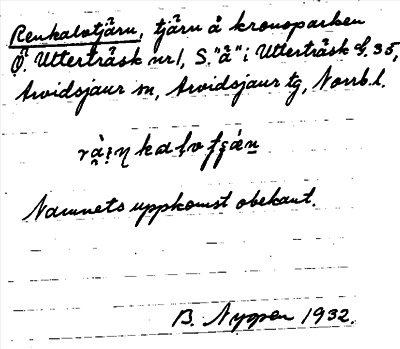 Renkalotjärn, tjärn å kronoparken
Ö. Utterträsk nr 1, S. "ä" i Utterträsk S. 35,
Arvidsjaur sn, Arvidsjaur tg, Norrb. l.
Namnets uppkomst obekant.
B. Nygren 1932.